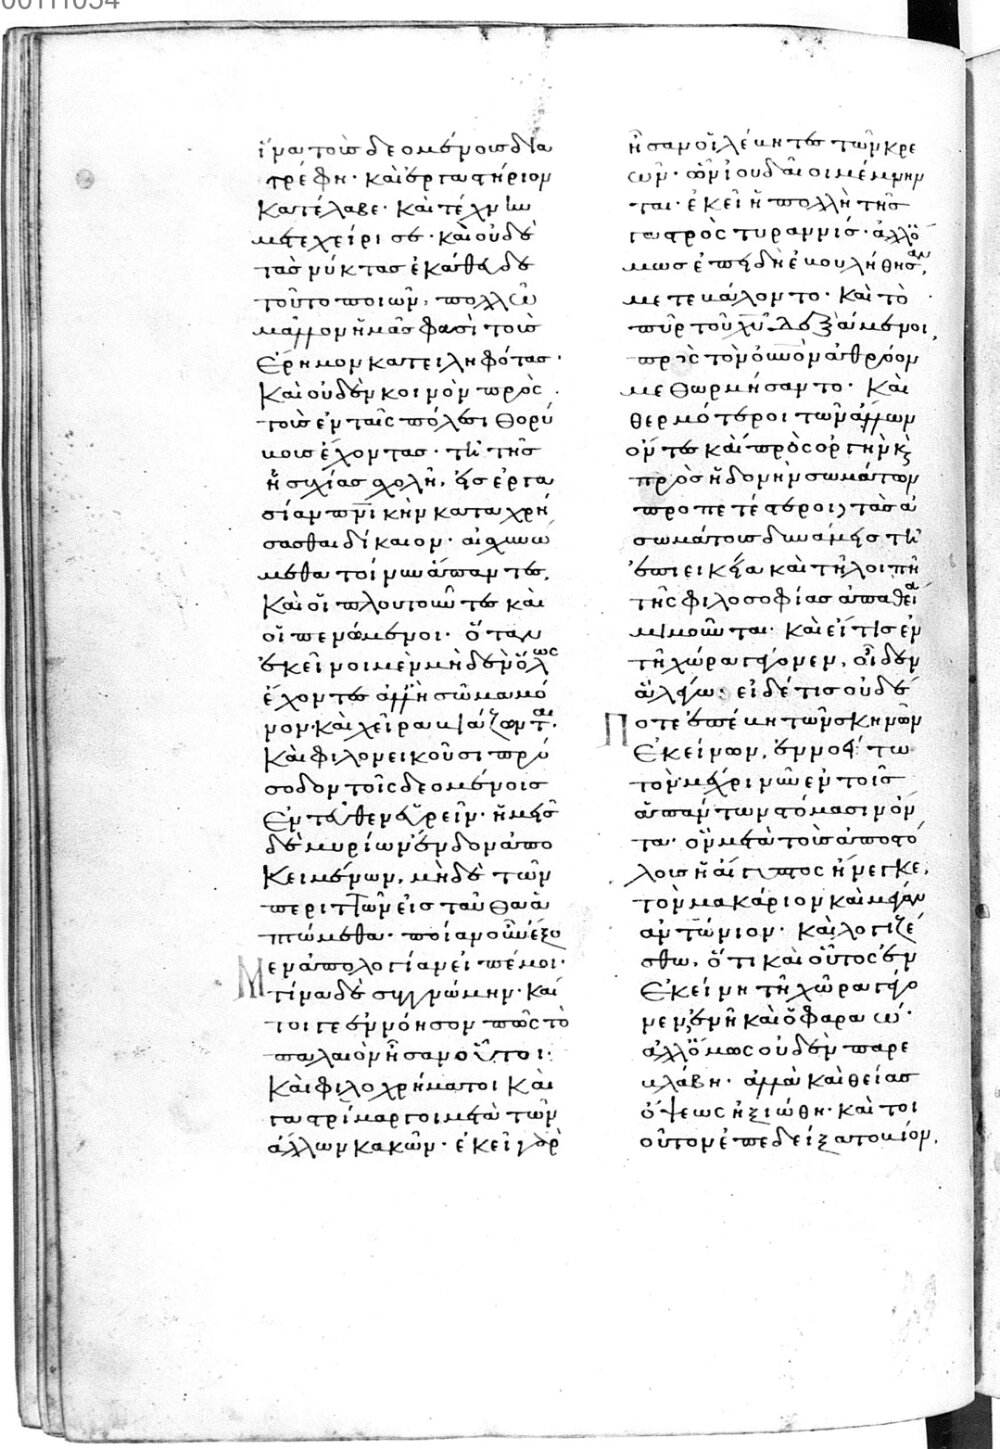 00111054
ἵνα τοῖς δεομένοις δια
τρέφη· καὶ ἐργαστήριον
κατέλαβε· καὶ τέχνην
μετεχείρισε· καὶ οὐδὲ
τὰς νύκτας ἐκάθευδε
τοῦτο ποιῶν, πολλῶ
μᾶλλον ἡμᾶς φασὶ τοὺς
ἔρημον κατειληφότας·
καὶ οὐδὲν κοινὸν πρὸς
τοὺς ἐν ταῖς πόλεσι θορύ
βους ἔχοντας· τῆ τῆς
ἡσυχίας σχολῆ, εἰς ἐργα
σίαν πνικὴν καταχρή
σασθαι δίκαιον· αἰσχυνώ
μεθα τοίνυν ἅπαντες,
καὶ οἱ πλουτοῦντες καὶ
οἱ πενόμενοι· ὅταν
ἐκεῖνοι μὲν μηδὲν ὅλως
ἔχοντες ἀλλ' ἢ σῶμα μό
νον· καὶ χεῖρας βιάζονται·
καὶ φιλονεικοῦσι πρό
σοδον τοῖς δεομένοις
ἐντεῦθεν εὑρεῖν· ἡμεῖς
δὲ μυρίων ἔνδον ἀπο
κειμένων, μηδὲ τῶν
περιττῶν εἰς ταῦθα ἁ
πτώμεθα· ποίαν οὖν ἕξο
μεν ἀπολογίαν εἰπέ μοι·
τίνα δὲ συγγνώμην· καί
τοι γε ἐννόησον πῶς τὸ
παλαιὸν ἦσαν οὗτοι·
καὶ φιλοχρήματοι καὶ
γαστρίμαργοι μετὰ τῶν
ἄλλων κακῶν· ἐκεῖ γὰρ
ἦσαν οἱ λέβητες τῶν κρε
ῶν· ὧν ἰουδαῖοι μέμνην
ται· ἐκεῖ ἡ πολλὴ τῆς
γαστρὸς τυραννίς· ἀλλ' ὅ
μως ἐπειδὴ ἐβουλήθησαν,
μετεβάλοντο· καὶ τὸ
πῦρ τοῦ χυ δεξάμενοι,
πρὸς τὸν οὐνὸν ἀθρόον
μεθωρμήσαντο· καὶ
θερμότεροι τῶν ἄλλων
ὄντες καὶ πρὸς ὀργὴν κ
πρὸς ἡδονὴν σωμάτων
προπετέστεροι, τὰς ἀ
σωμάτους δυνάμεις τῆ
ἐπιεικεία καὶ τῆ λοιπῆ
τῆς φιλοσοφίας ἀπαθεία
μιμοῦνται· καὶ εἴ τις ἐν
τῆ χώρα γέγονεν, οἶδεν
ἃ λέγω· εἰ δέ τις οὐδέ
ποτε ἐπέβη τῶν σκηνῶν
ἐκείνων, ἐννοείτω
τὸν μέχρι νῦν ἐν τοῖς
ἁπάντων στόμασιν ὄν
τα· ὃν μετὰ τοὺς ἀποστό
λους ἡ αἴγυπτος ἤνεγκε,
τὸν μακάριον καὶ μέγαν
ἀντώνιον· καὶ λογιζέ
σθω, ὅτι καὶ οὗτος ἐν
ἐκείνη τῆ χώρα γέγο
νεν, ἐν ἧ καὶ ὁ φαραώ·
ἀλλ' ὅμως οὐδὲν παρε
βλάβη· ἀλλὰ καὶ θείας
ὄψεως ἠξιώθη· καὶ τοι
οῦτον ἐπεδείξατο βίον,